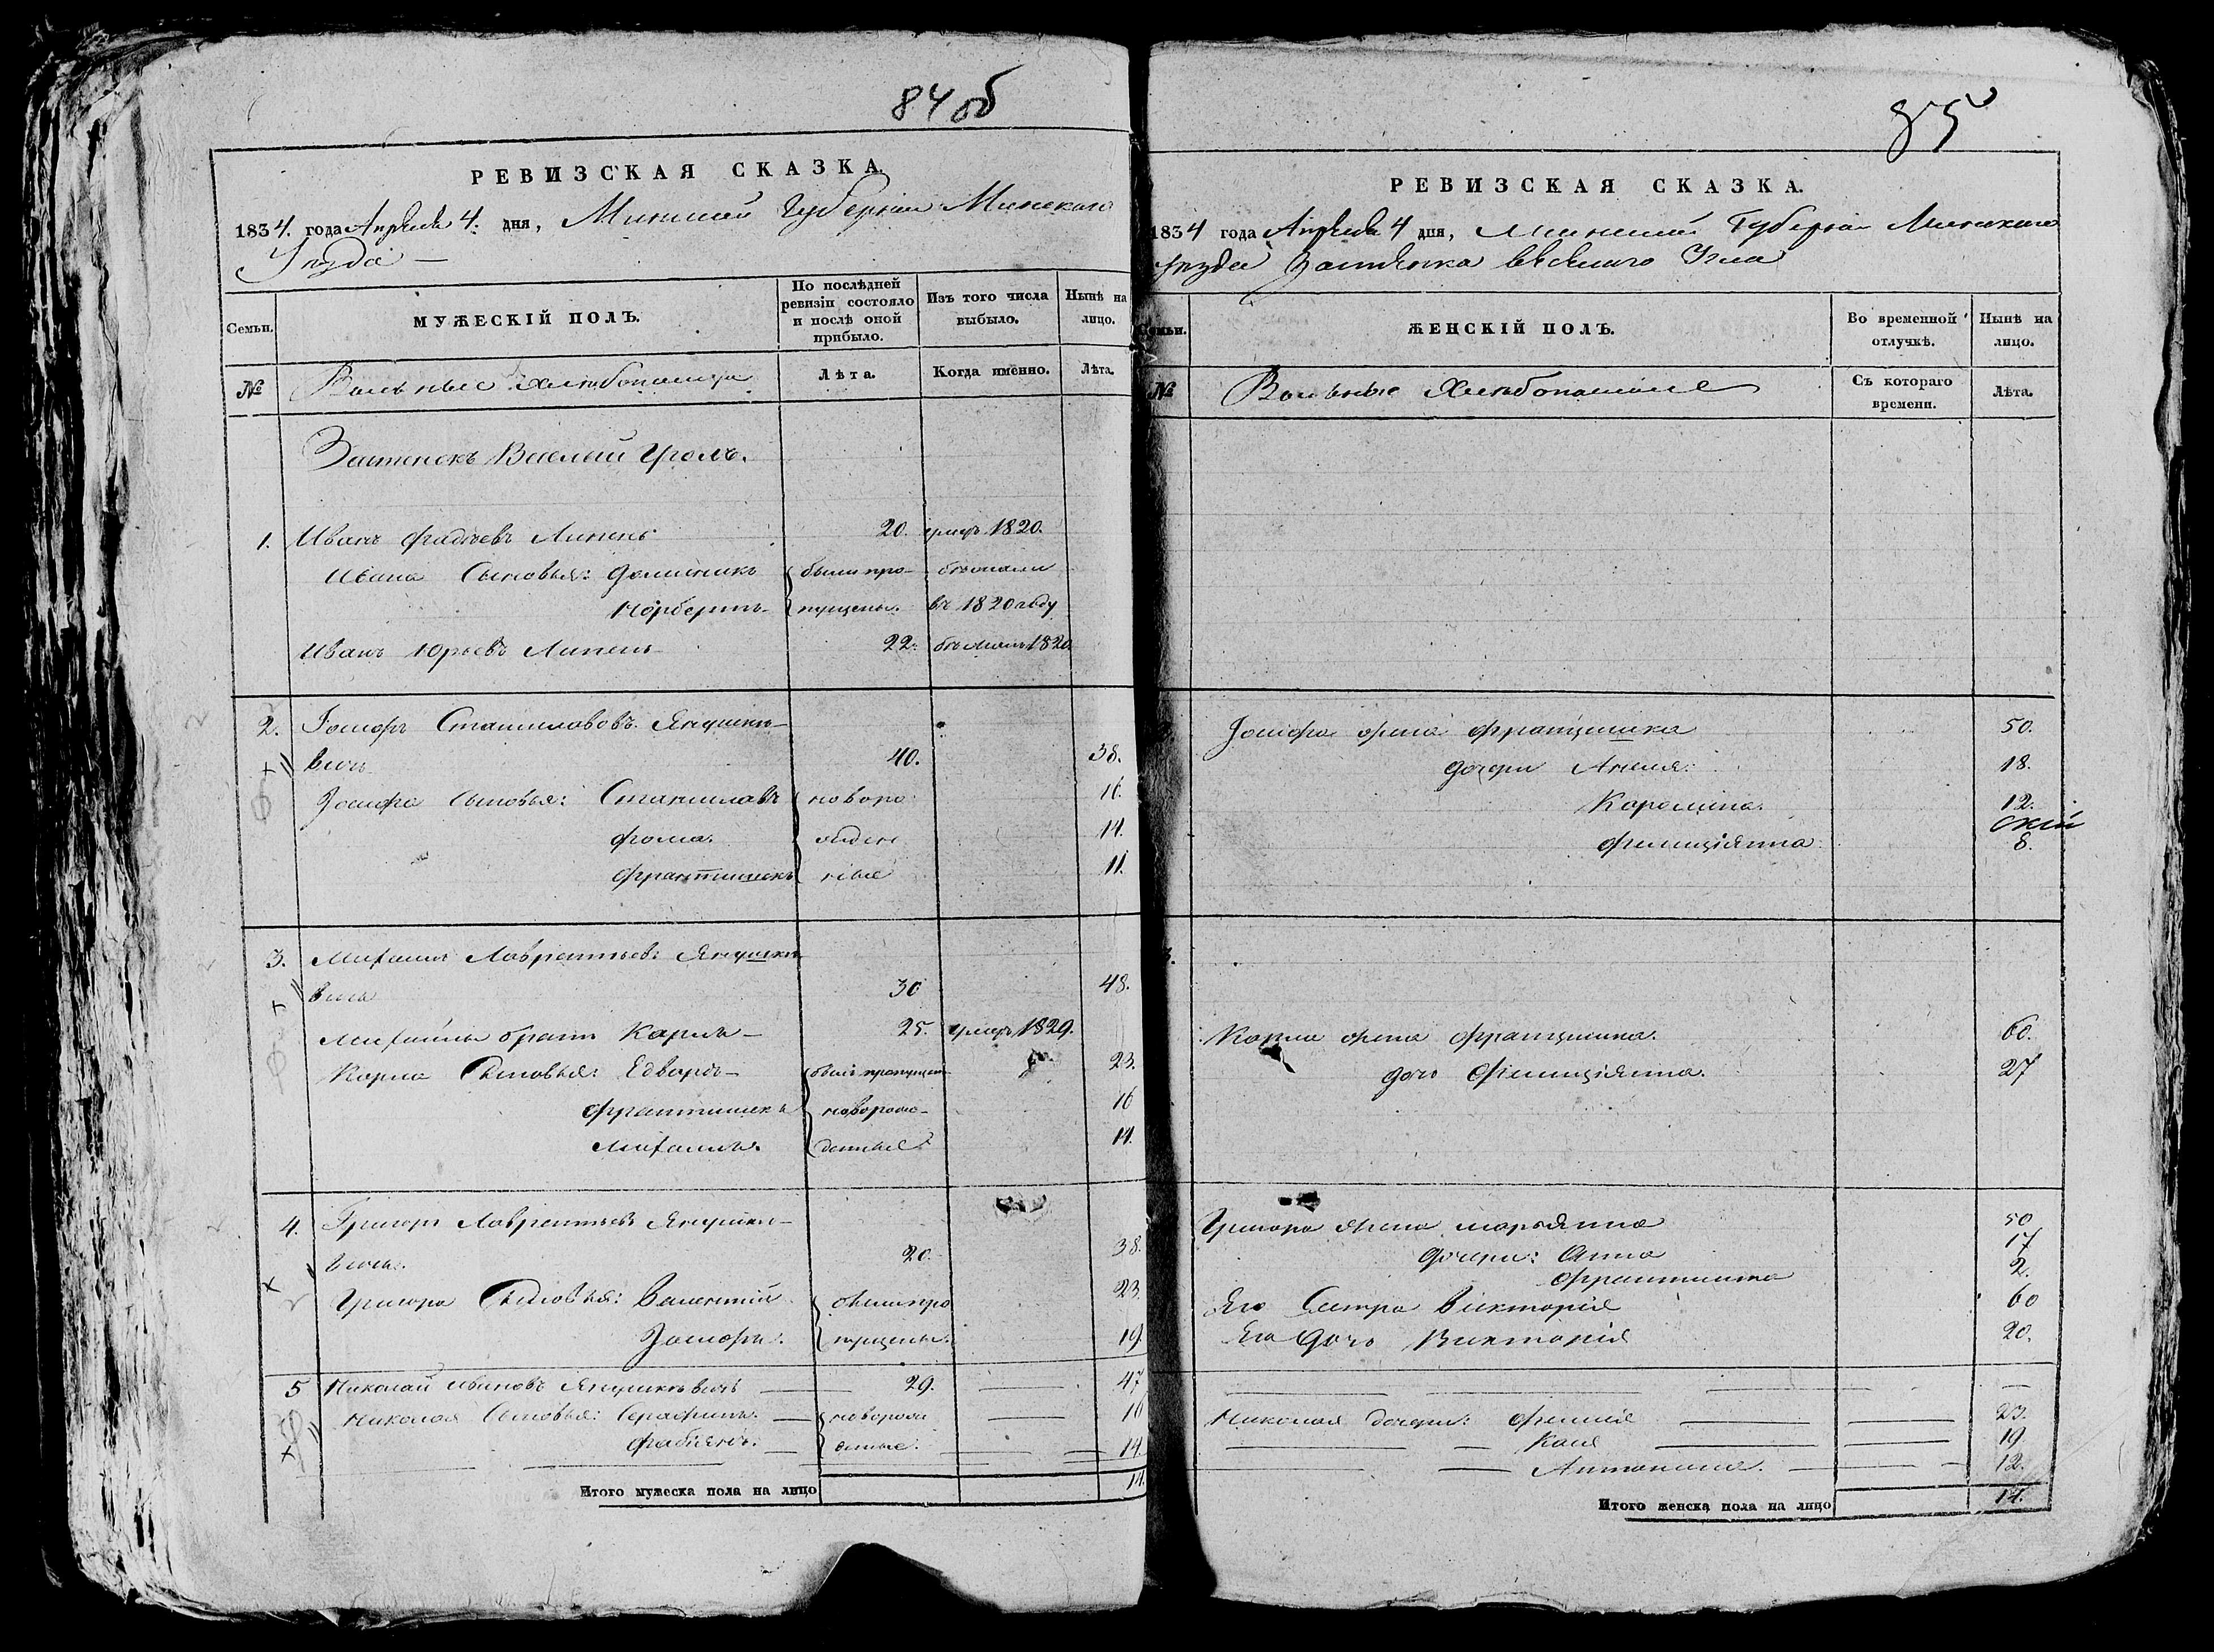 84 об
РЕВИЗСКАЯ СКАЗКА.
1834. года Апреля 4. дня, Минской Губернии Минского
Уезда —
Семьи. МУЖЕСКІЙ ПОЛЪ. По послѣдней ревизіи состояло и послѣ оной прибыло. Изъ того числа выбыло. Нынѣ на лицо.
№ Вольные Хлебопашцы Лѣта. Когда имённо. Лѣта.
Застенокъ Веселый Уголъ.
1. Иванъ Фадѣевъ Липень 20. умеръ 1820.
Ивана Сыновья: Доминикъ были про- бежали
Норбертъ пущены. въ 1820 году
Иванъ Юрьевъ Липень 22. бежалъ 1820
2. Іосифъ Станиславовъ Янушке-
вичь 40. 38.
Іосифа Сыновья: Станиславъ новоро 16.
Фома. жден 14.
Франтишекъ ные 11.
3. Михаилъ Лаврентьевъ Янушке
вичь 30 48.
Михайлы братъ Карлъ — 25. умеръ 1829.
Карла Сыновья: Едвардъ — былъ пропущен 23.
Франтишекъ новорож- 16
Михаилъ. денные 14.
4. Григоръ Лаврентьевъ Янушке-
вичь. 20. 38.
Григора Сыновья: Валентій были про 23.
Іосифъ. пущены. 19
5 Николай Ивановъ Янушкевичъ 29. 47
Николая Сыновья: Серафинъ. новорож 16
Фабіянъ. енные. 14
Итого мужеска пола на лицо 14.
85
РЕВИЗСКАЯ СКАЗКА.
1834 года Апреля 4 дня, Минской Губернии Минского
Уезда Застенка Веселого Угла
Семьи. ЖЕНСКІЙ ПОЛЪ. Во временной отлучкѣ. Нынѣ на лицо.
№ Вольные Хлебопашцы Съ котораго времени. Лѣта.
Іосифа жена Францишка 50.
дочери Анеля: 18.
Каролина. 12.
Фелиціянна 8.
3.
Карла жена Францишка. 60.
дочь Фелиціянна. 27
Григора жена Марьянна 50
дочери: Анна 17
Франтишка 2.
Его Сестра Викторія 60
Его дочь Викторія 20.
Николая дочери: 23.
19
Антонина. 12.
Итого женска пола на лицо 14.